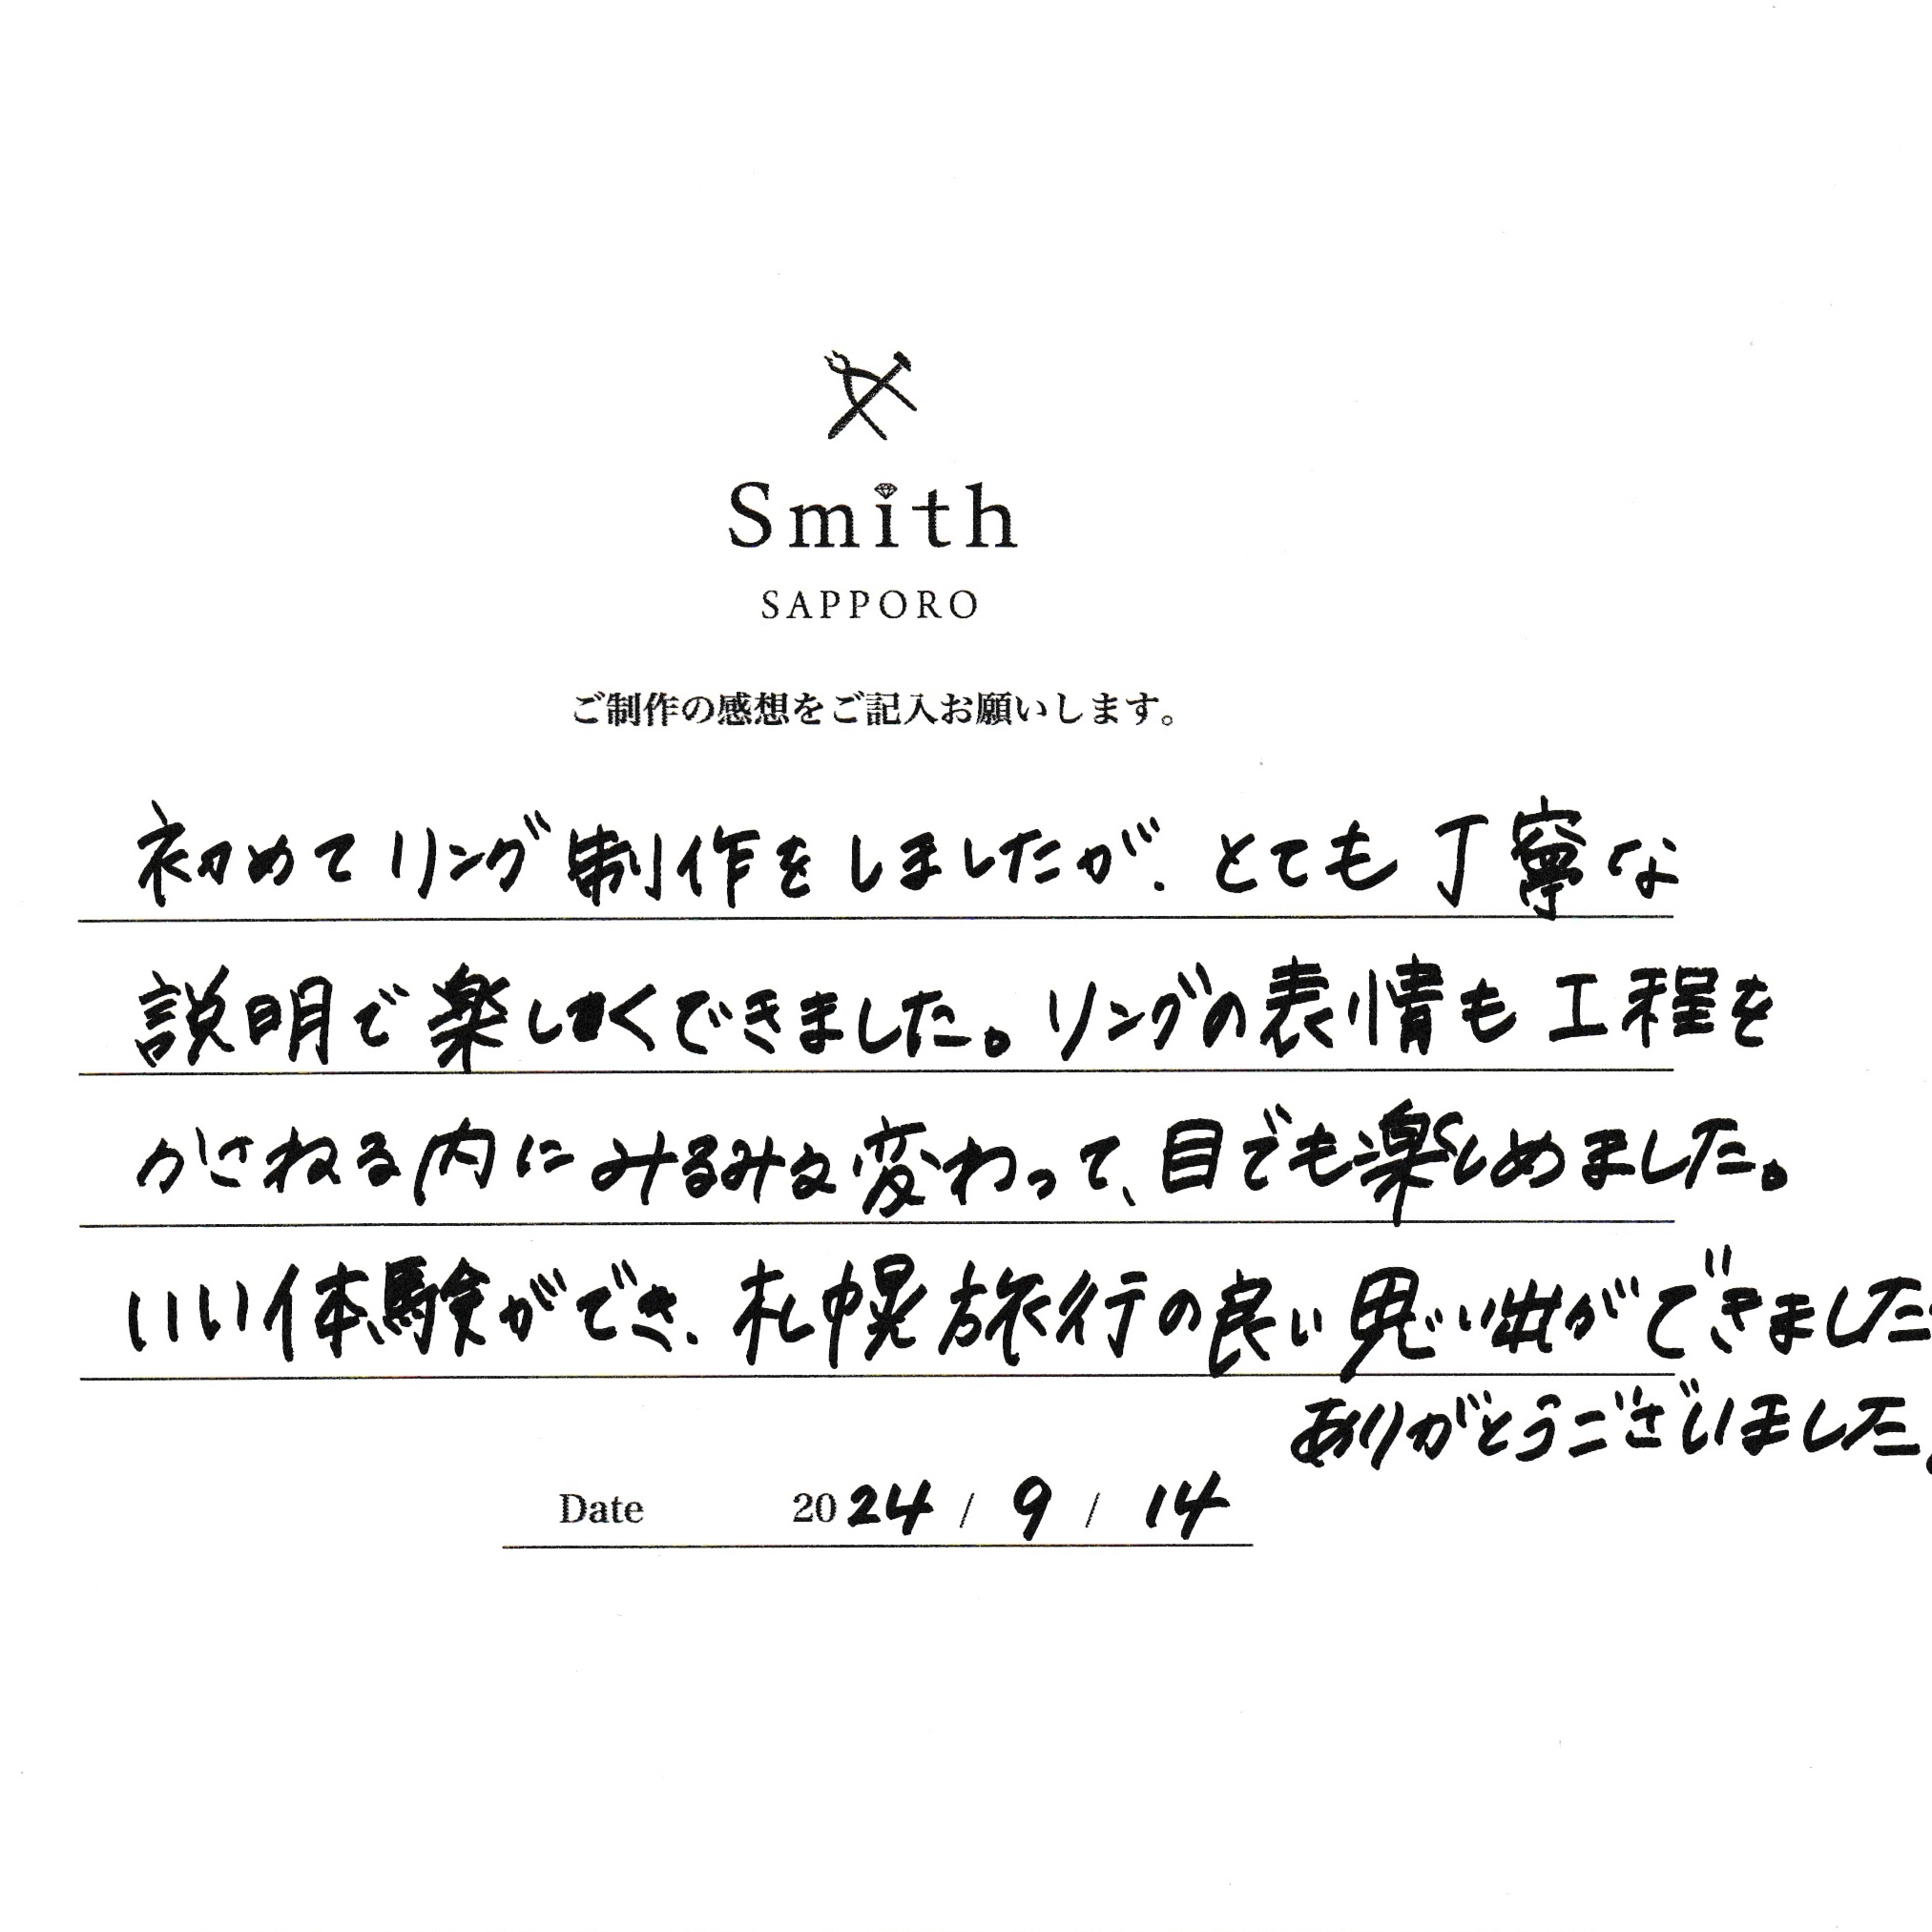 Smith
SAPPORO
ご制作の感想をご記入お願いします。
初めてリング制作をしましたが、とても丁寧な
説明で楽しくできました。リングの表情も工程を
かさねる内にみるみる変わって、目でも楽しめました。
いい体験ができ、札幌旅行の良い思い出ができました
ありがとうございました。
Date 2024 / 9 / 14